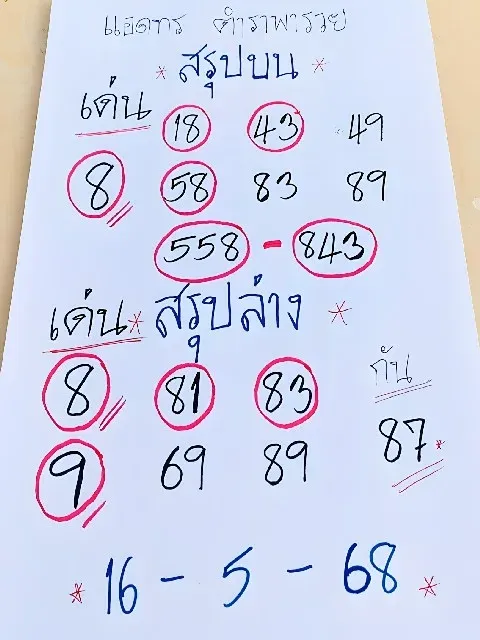 แอดทร ตำราพารวย
* สรุปบน *
เด่น 18 43 49
8 58 83 89
558 - 843
เด่น * สรุปล่าง *
8 81 83 กัน
9 69 89 87*
* 16 - 5 - 68 *